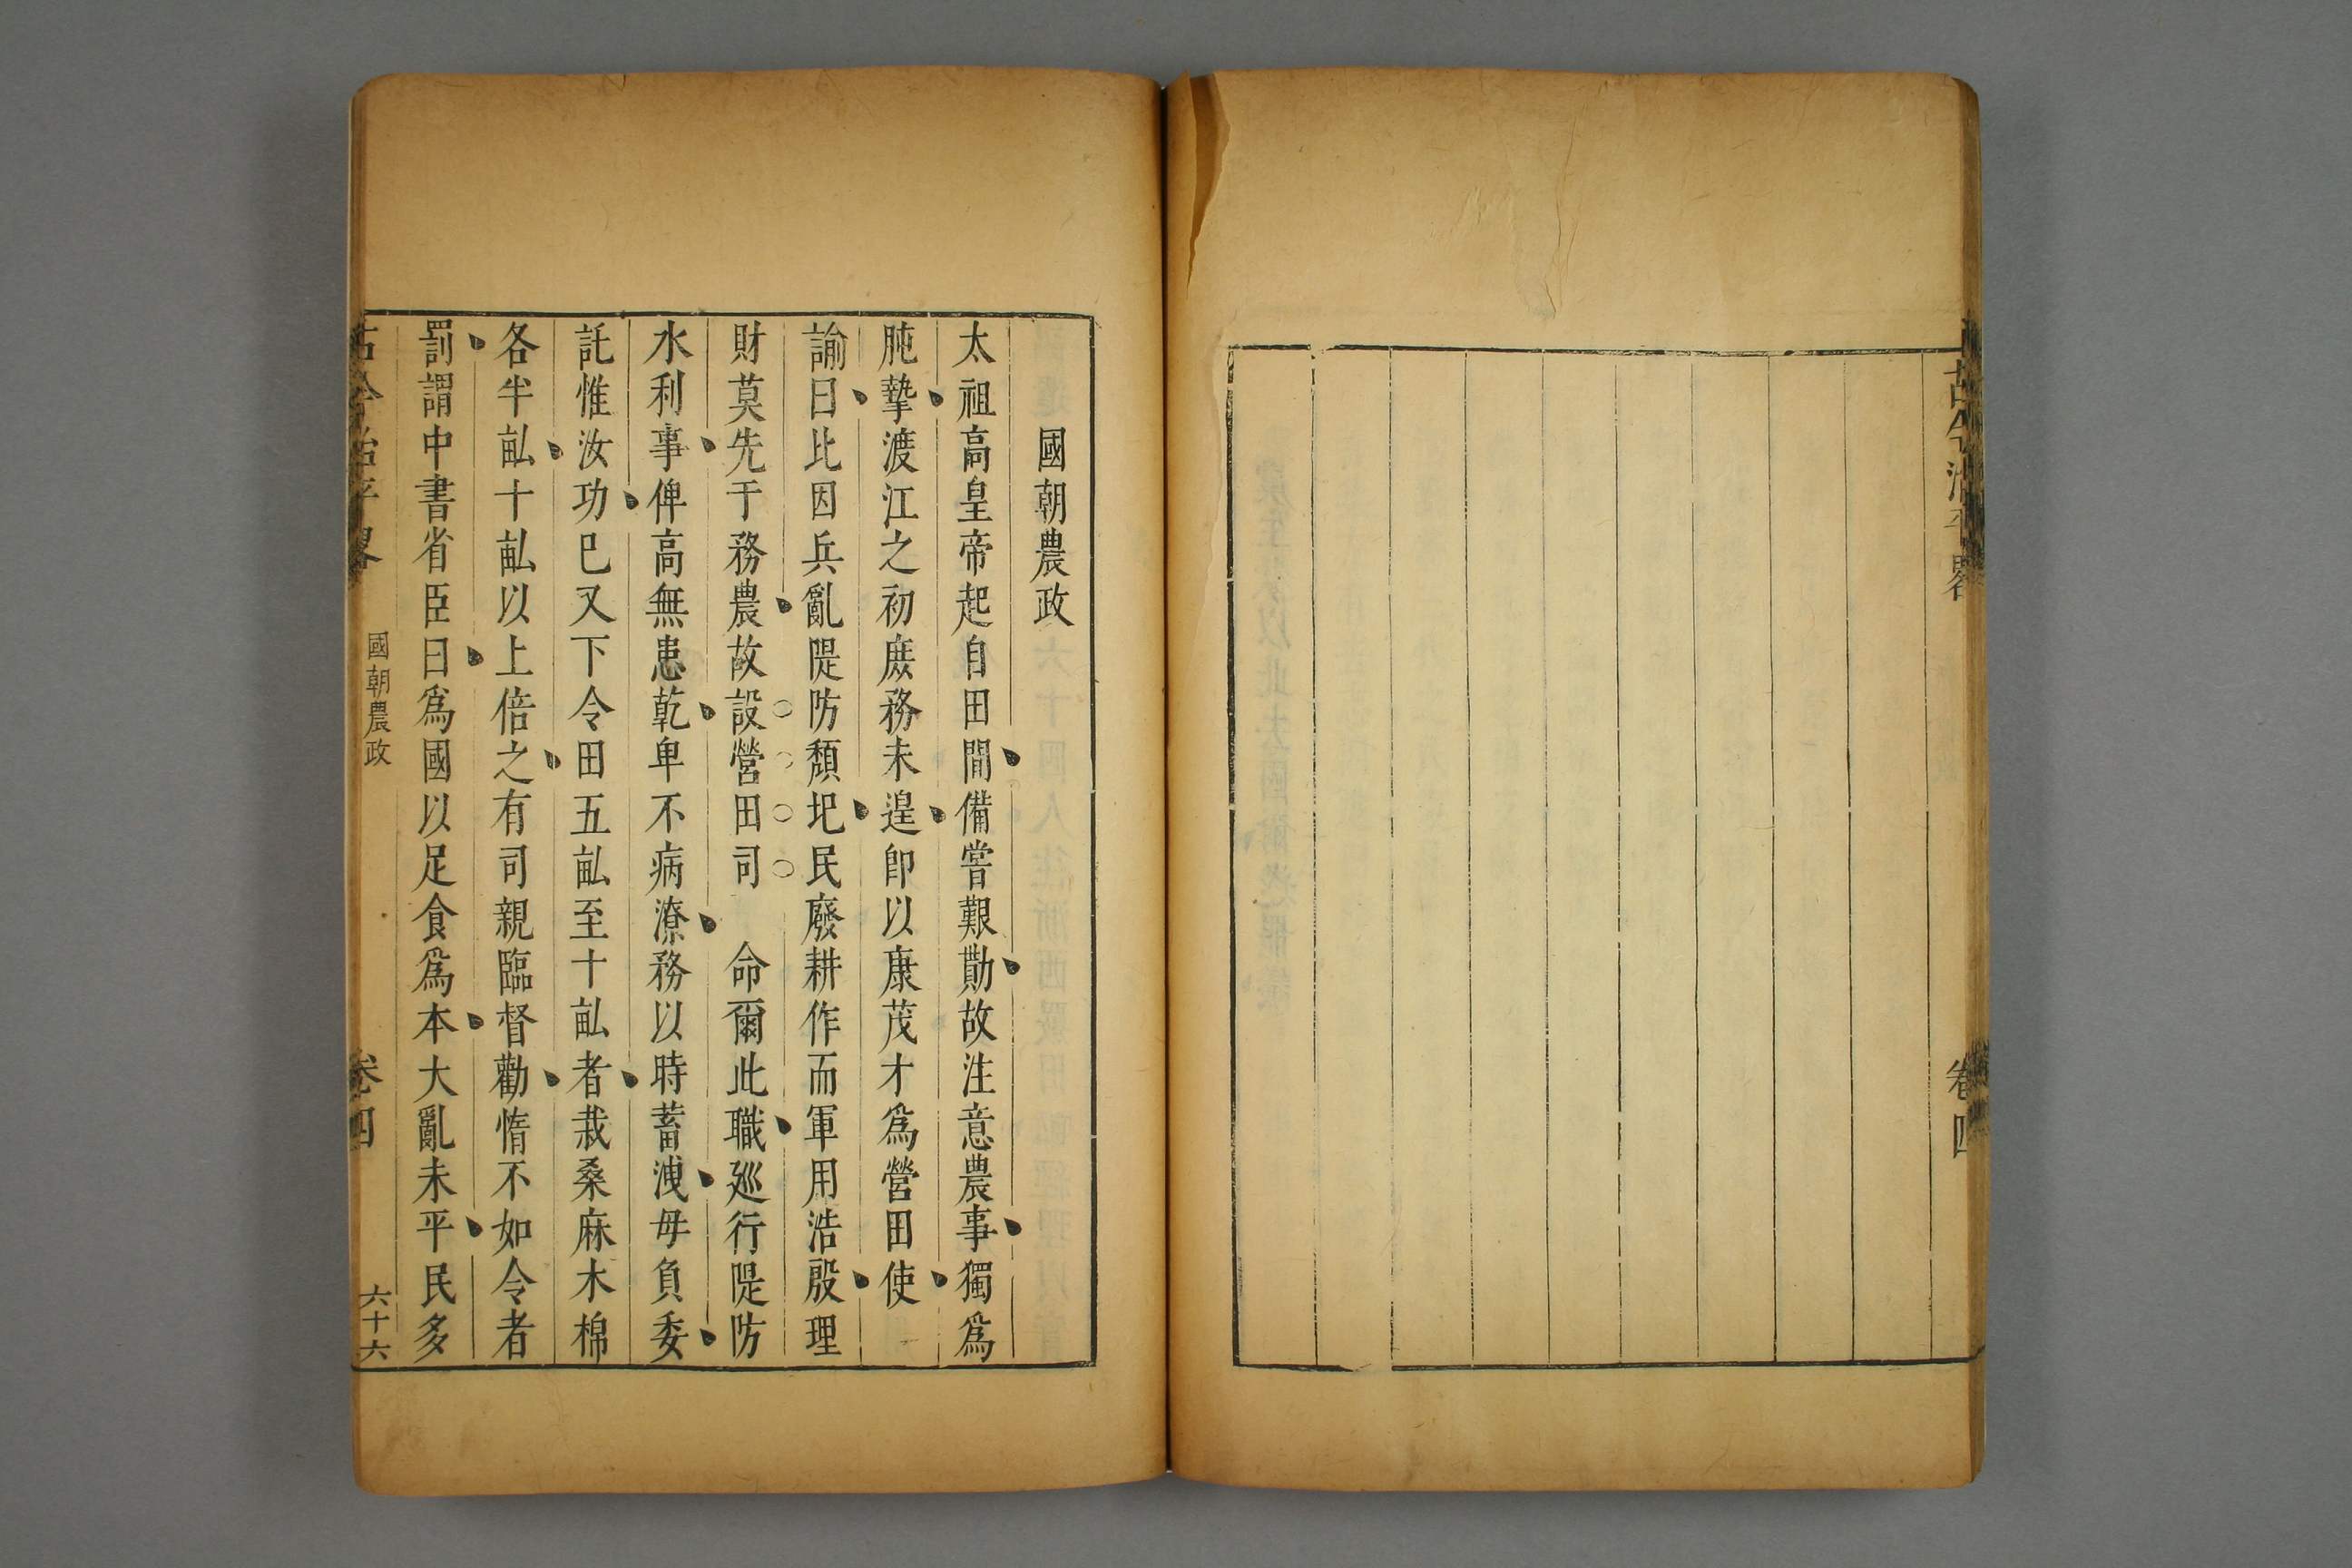 古今治平畧
卷四
國朝農政
太祖高皇帝起自田間備嘗艱勩故注意農事獨爲
肫摯渡江之初庶務未遑卽以康茂才爲營田使
諭曰比因兵亂隄防頹圯民廢耕作而軍用浩殷理
財莫先于務農故設營田司 命爾此職廵行隄防
水利事俾高無患乾卑不病潦務以時蓄洩毋負委
託惟汝功巳又下令田五畝至十畝者栽桑麻木棉
各半畝十畝以上倍之有司親臨督勸惰不如令者
罰謂中書省臣曰爲國以足食爲本大亂未平民多
古今治平畧
國朝農政
卷四
六十六